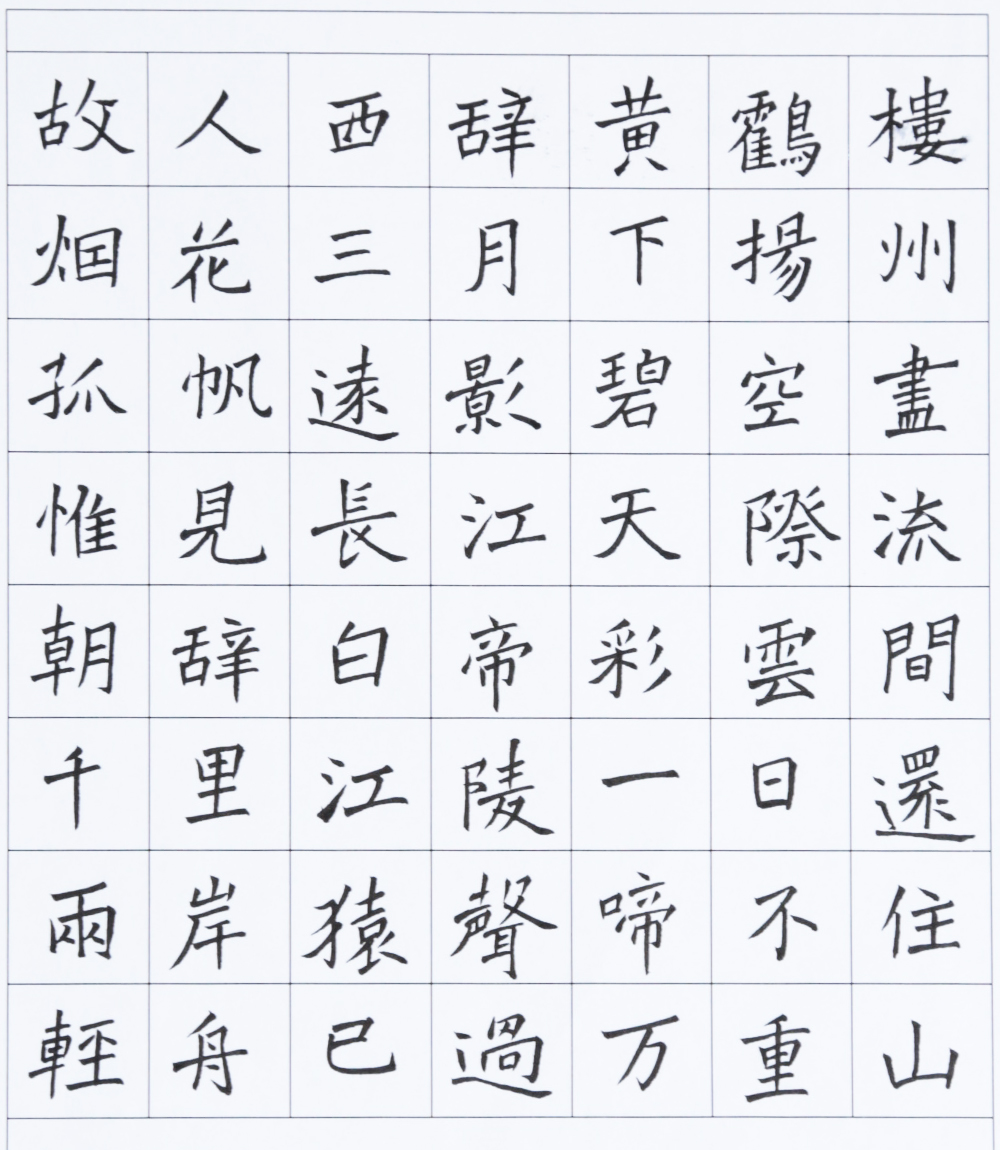 故人西辞黄鶴樓
烟花三月下揚州
孤帆遠影碧空盡
惟見長江天際流
朝辞白帝彩雲間
千里江陵一日還
兩岸猿聲啼不住
輕舟已過万重山